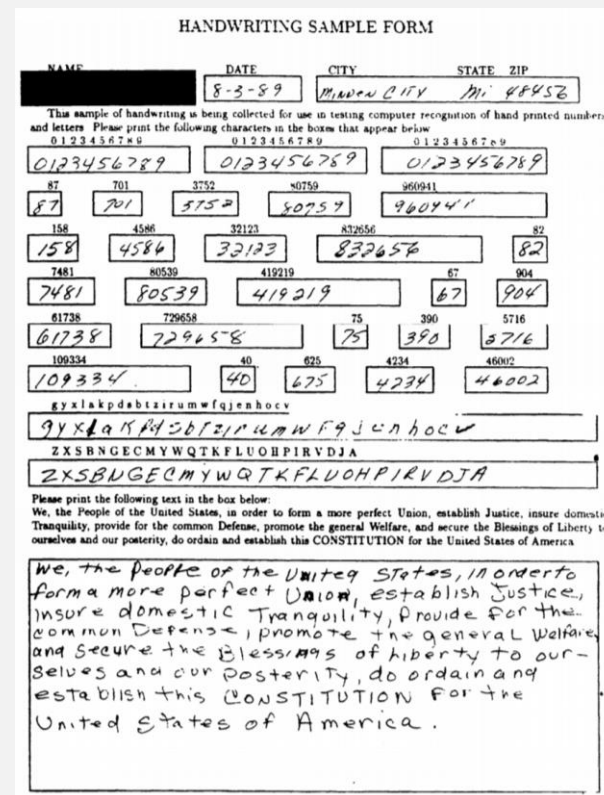 HANDWRITING SAMPLE FORM
NAME DATE CITY STATE ZIP
8-3-89 MINDEN CITY Mi 48456
This sample of handwriting is being collected for use in testing computer recognition of hand printed numbers
and letters Please print the following characters in the boxes that appear below
0 1 2 3 4 5 6 7 8 9 0 1 2 3 4 5 6 7 8 9 0 1 2 3 4 5 6 7 8 9
0123456789 0123456789 0123456789
87 701 3752 80759 960941
87 701 3752 80759 960941
158 4586 32123 832656 82
158 4586 32123 832656 82
7481 80539 419219 67 904
7481 80539 419219 67 904
61738 729658 75 390 5716
61738 729658 75 390 5716
109334 40 625 4234 46002
109334 40 675 4234 46002
gyxlakpdsbtzirumwfqjenhocv
gyxlakpdsbtzirumwfqjenhocv
ZXSBNGECMYWQTKFLUOHPIRVDJA
ZXSBNGECMYWQTKFLUOHPIRVDJA
Please print the following text in the box below:
We, the People of the United States, in order to form a more perfect Union, establish Justice, insure domestic
Tranquility, provide for the common Defense, promote the general Welfare, and secure the Blessings of Liberty to
ourselves and our posterity, do ordain and establish this CONSTITUTION for the United States of America
We, the People of the United States, in order to
form a more perfect Union, establish Justice,
insure domestic Tranquility, Provide for the
common Defense, promote the general Welfare,
and secure the Blessings of Liberty to our-
selves and our Posterity, do ordain and
establish this CONSTITUTION For the
United States of America.